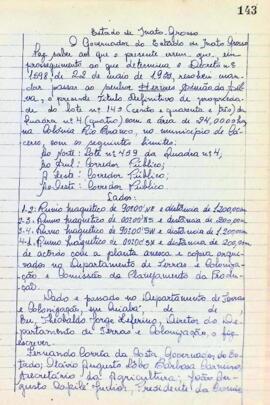 143
Estado de Mato Grosso
O Governador do Estado de Mato Grosso
Faz saber aos que o presente virem que, em
prosseguimento ao que determina o Decreto nº
1598, de 22 de maio de 1953, resolveu mandar
passar ao senhor Hermes da Silva
, o presente título definitivo de propriedade
do lote nº 143 (cento e quarenta e três) da
quadra nº 4 (quatro) com a área de 24,0000 has
na Colônia Rio Branco, no município de Cá-
ceres, com os seguintes limites:
Ao norte: Lote nº 139 da Quadra nº 4;
Ao Sul: Corredor Público;
A Leste: Corredor Público;
Ao Oeste: Corredor Público.
Lados:
1-2: Rumo magnético de e distância de 1.200,00m
2-3: Rumo magnético de e distância de 200,00m
3-4: Rumo magnético de e distância de 1.200,00
4-1: Rumo magnético de e distância de 200,00m
de acordo com a planta anexa e cópia arqui-
vada no Departamento de Terras e Coloniza-
ção e Comissão de Planejamento da Produ-
ção.
Dado e passado no Departamento de Terras
e Colonização, em Cuiabá, de de
Eu, Jorge Diretor do De-
partamento de Terras e Colonização, o fiz
escrever.
Fernando Corrêa da Costa, Governador do Es-
tado; Augusto Lôbo Barbosa Carneiro,
Secretário da Agricultura; João Au-
gusto Capilé Junior, Presidente da